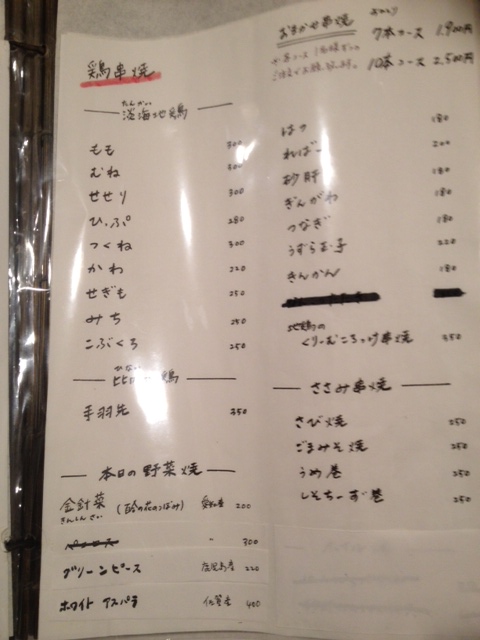 鶏串焼
たんかい
淡海地鶏
もも 300
むね 300
せせり 300
ひっぷ 280
つくね 300
かわ 220
せぎも 250
みち 250
こぶくろ 250
ひない
鶏
手羽先 350
本日の野菜焼
金針菜 (百合の花のつぼみ) 愛知産 200
きんしんさい
〃 300
グリーンピース 鹿児島産 220
ホワイトアスパラ 佐賀産 400
おまかせ串焼
7本コース 1,900円
10本コース 2,500円
はつ 180
ればー 200
砂肝 180
ぎんがわ 180
つなぎ 180
うずら玉子 220
きんかん 180
地鶏の
くりーむころっけ串焼 350
ささみ串焼
さび焼 250
ごまみそ焼 250
うめ巻 250
しそちーず巻 250